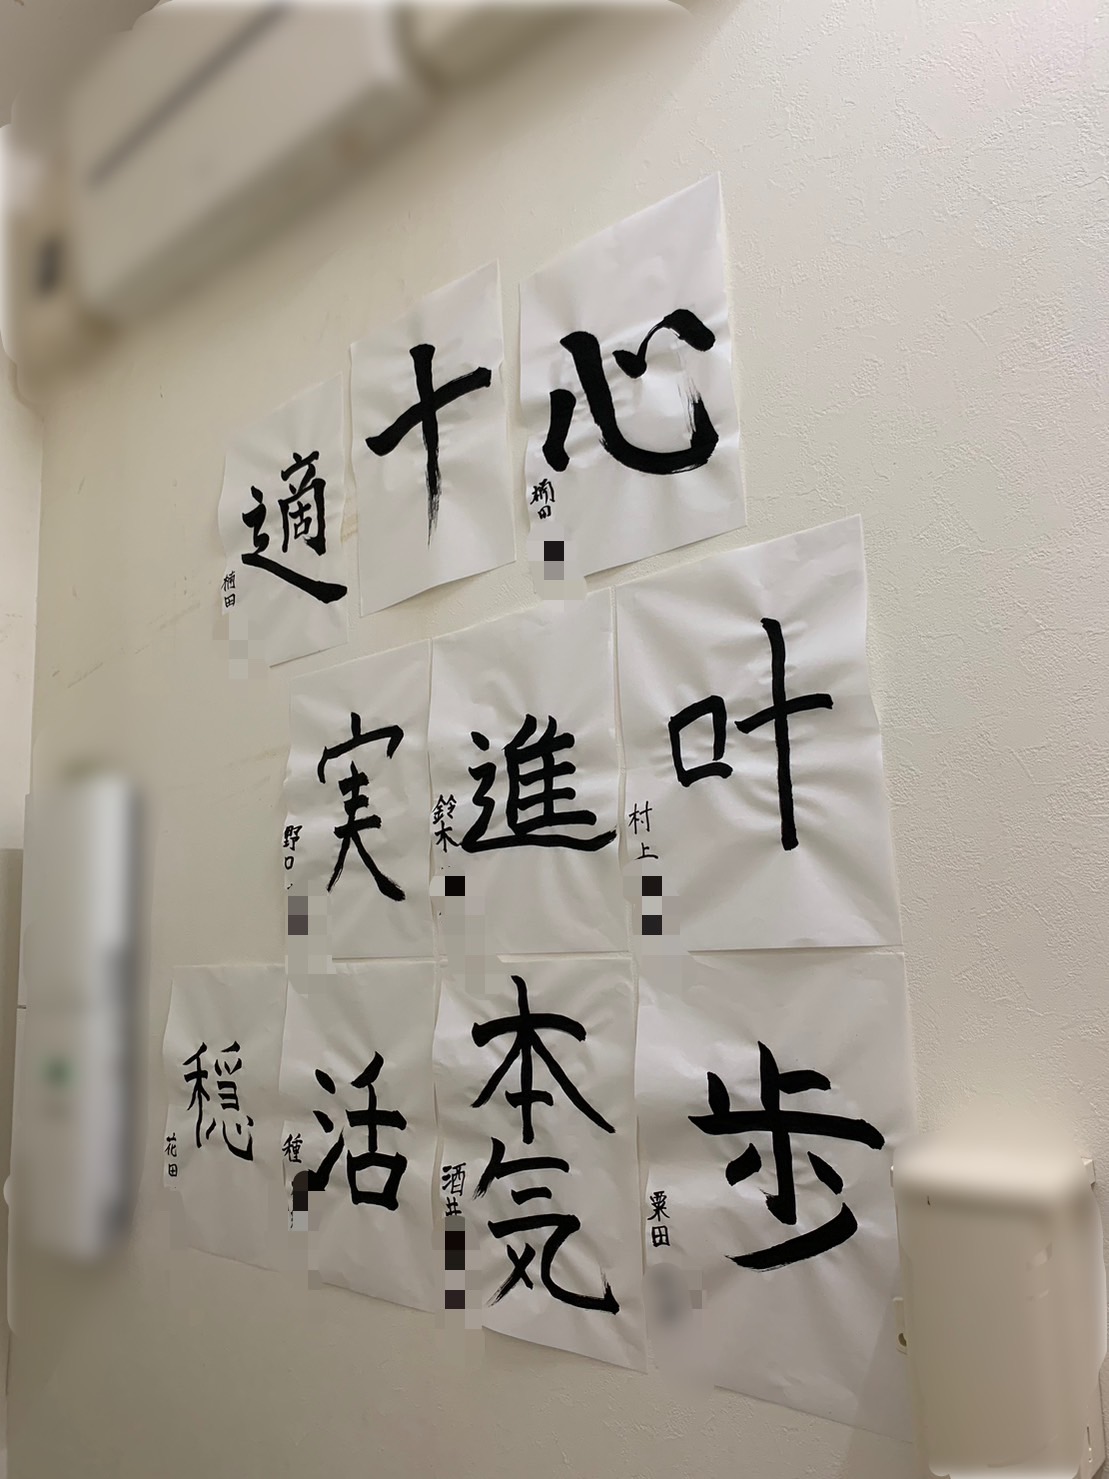 心
楠田
十
適
楠田
叶
村上
進
鈴木
実
野口
歩
粟田
本気
酒井
活
種
穏
花田